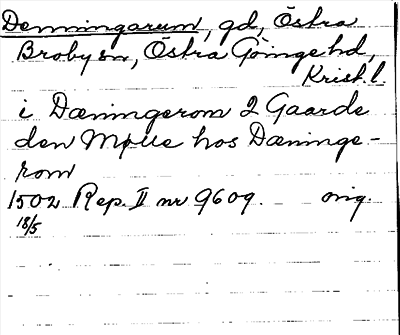 Denningarum, gd, Östra
Broby sn, Östra Göinge hd,
Krist. l.
i Dæningerom 2 Gaarde
den Mølle hos Dæninge-
rom
1502 Rep. II nr 9609. orig.
18/5